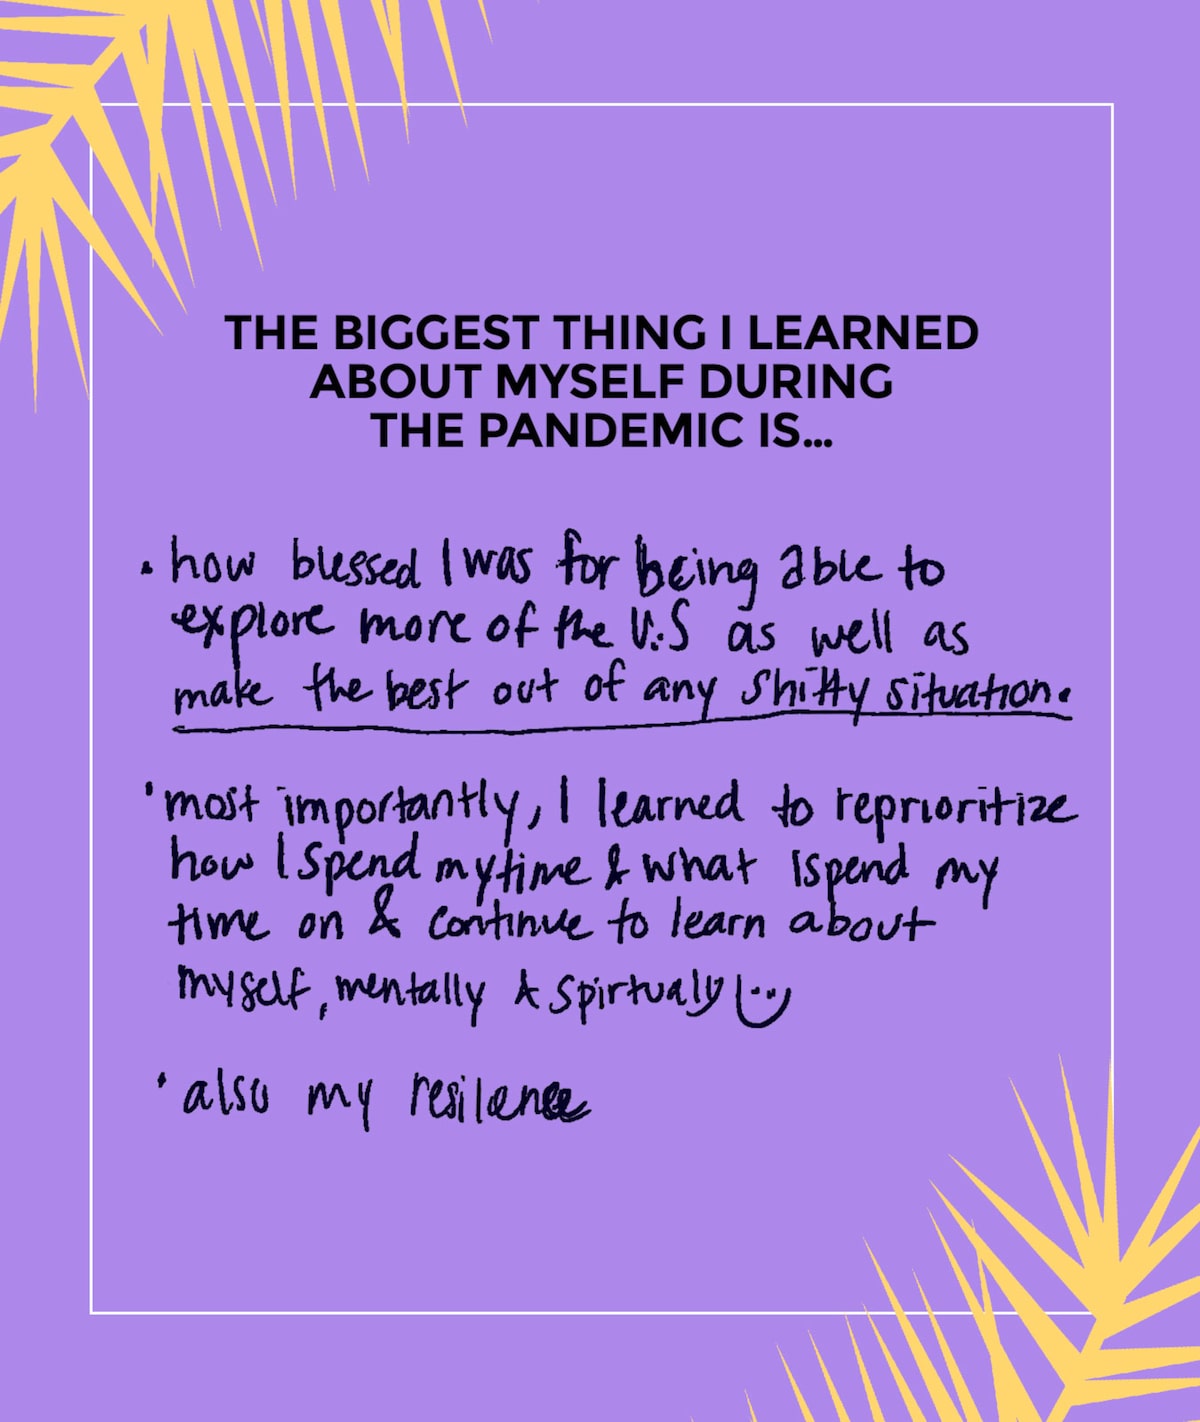 THE BIGGEST THING I LEARNED
ABOUT MYSELF DURING
THE PANDEMIC IS...
• how blessed I was for being able to
explore more of the U.S as well as
make the best out of any shitty situation.
• most importantly, I learned to reprioritize
how I spend my time & what I spend my
time on & continue to learn about
myself, mentally & spirtualy
• also my resilence